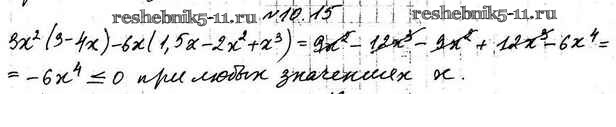 www.reshebnik5-11.ru
№10.15
reshebnik5-11.ru
3x²(3-4x)-6x(1,5x-2x²+x³)=9x²-12x³-9x²+12x³-6x⁴=
=-6x⁴≤0 при любых значениях x.